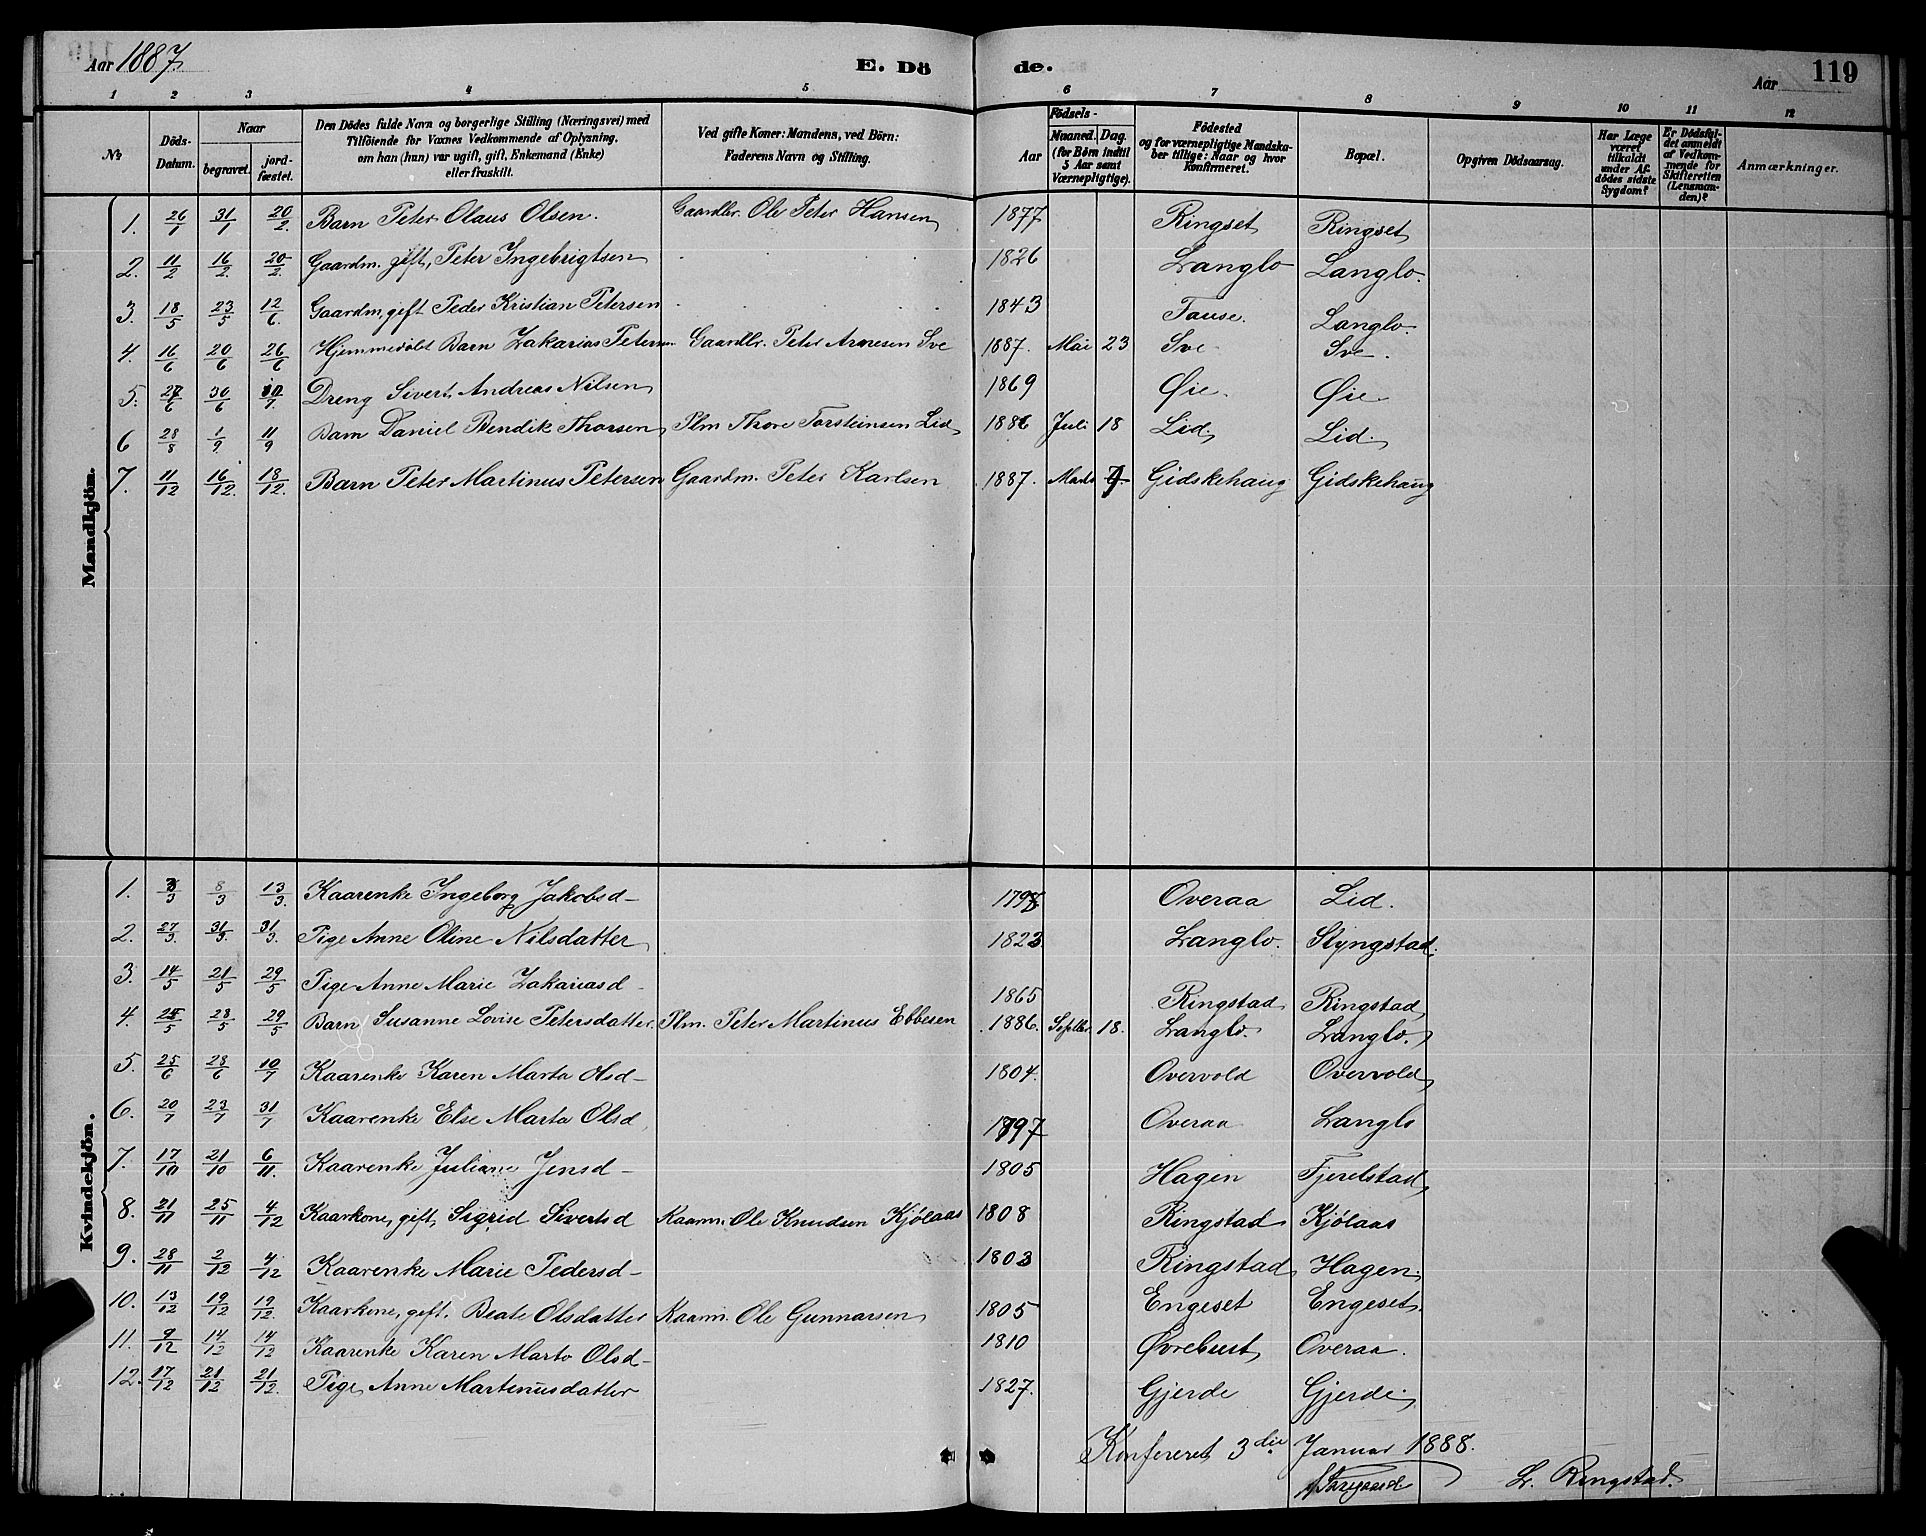 Aar 1887. E. Dö de. Aar 119
1 2 3 4 5 6 7 8 9 10 11 12
№ Döds-Datum. Naar begravet. jord-fæstet. Den Dödes fulde Navn og borgerlige Stilling (Næringsvei) med Tilföiende for Voxnes Vedkommende af Oplysning, om han (hun) var ugift, gift, Enkemand (Enke) eller fraskilt. Ved gifte Koner: Mandens, ved Börn: Faderens Navn og Stilling. Födsels- Aar Maaned. Dag. (for Børn indtil 5 Aar samt Værnepligtige). Födested og for værnepligtige Mandskaber tillige: Naar og hvor Konfirmeret. Bopæl. Opgiven Dödsaarsag. Har Læge været tilkaldt under Afdödes sidste Sygdom? Er Dödsfaldet anmeldt af Vedkommende for Skifteretten (Lensmanden)? Anmærkninger.
Mandkjön.
1. 26/1 31/1 20/2 Barn Peter Olaus Olsen. Gaardbr. Ole Peter Hansen 1877 Ringset Ringset
2. 11/2 16/2. 20/2. Gaardm. gift, Peter Ingebrigtsen 1826 Langlo Langlo.
3. 18/5 23/5 12/6. Gaardm, gift Peder Kristian Petersen 1843 Tause. Langlo.
4. 16/6 20/6 26/6 Hjemmedöbt Barn Zakarias Petersen Gaardbr. Peter Arnesen Sve 1887. Mai 23 Sve Sve.
5. 27/6 30/6 10/7. Dreng Sivert Andreas Nilsen 1869 Øie. Øie.
6 28/8 1/9 11/9 Barn Daniel Bendik Thorsen Plm Thore Torsteinsen Lid 1886 Juli 18 Lid. Lid.
7. 11/12 16/12. 18/12. Barn Peter Martinus Petersen Gaardm. Peter Karlsen 1887. Marts 7. Gidskehaug Gidskehaug
Kvindekjön.
1. 3/3 8/3 13/3. Kaarenke Ingeborg Jakobsd- Overaa Lid.
2. 27/3. 31/3. 31/3. Pige Anne Oline Nilsdatter 1823 Langlo. Styngstad.
3. 14/5 21/5 29/5 Pige Anne Marie Zakariasd- 1865 Ringstad Ringstad
4. 25/5 28/5 29/5 Barn Susanne Lovise Petersdatter. Plm. Peter Martinus Ebbesen 1886. Septbr. 18. Langlo. Langlo.
5. 25/6 28/6 10/7 Kaarenke Karen Marta Olsd- 1804. Overvold Overvold
6. 20/7 23/7 31/7 Kaarenke Else Marta Olsd 1797 Overaa Langlo
7. 17/10 21/10 6/11. Kaarenke Juliane Jensd- 1805 Hagen Fjerelstad
8. 21/11 25/11 4/12 Kaarkone, gift, Sigrid Sivertsd Kaarm. Ole Knudsen Kjölaas 1808 Ringstad Kjölaas
9. 28/11 2/12 4/12 Kaarenke Marie Pedersd- 1803 Ringstad Hagen.
10. 13/12 19/12 19/12. Kaarkone, gift. Beate Olsdatter Kaarm. Ole Gunnarsen 1805 Engeset Engeset.
11. 9/12 14/12 14/12 Kaarenke Karen Marta Olsd- 1810 Øvrebust Overaa.
12. 17/12 21/12 21/12. Pige Anne Martinusdatter 1827. Gjerde Gjerde.
Konfereret 3die Januar 1888.
L. Ringstad.